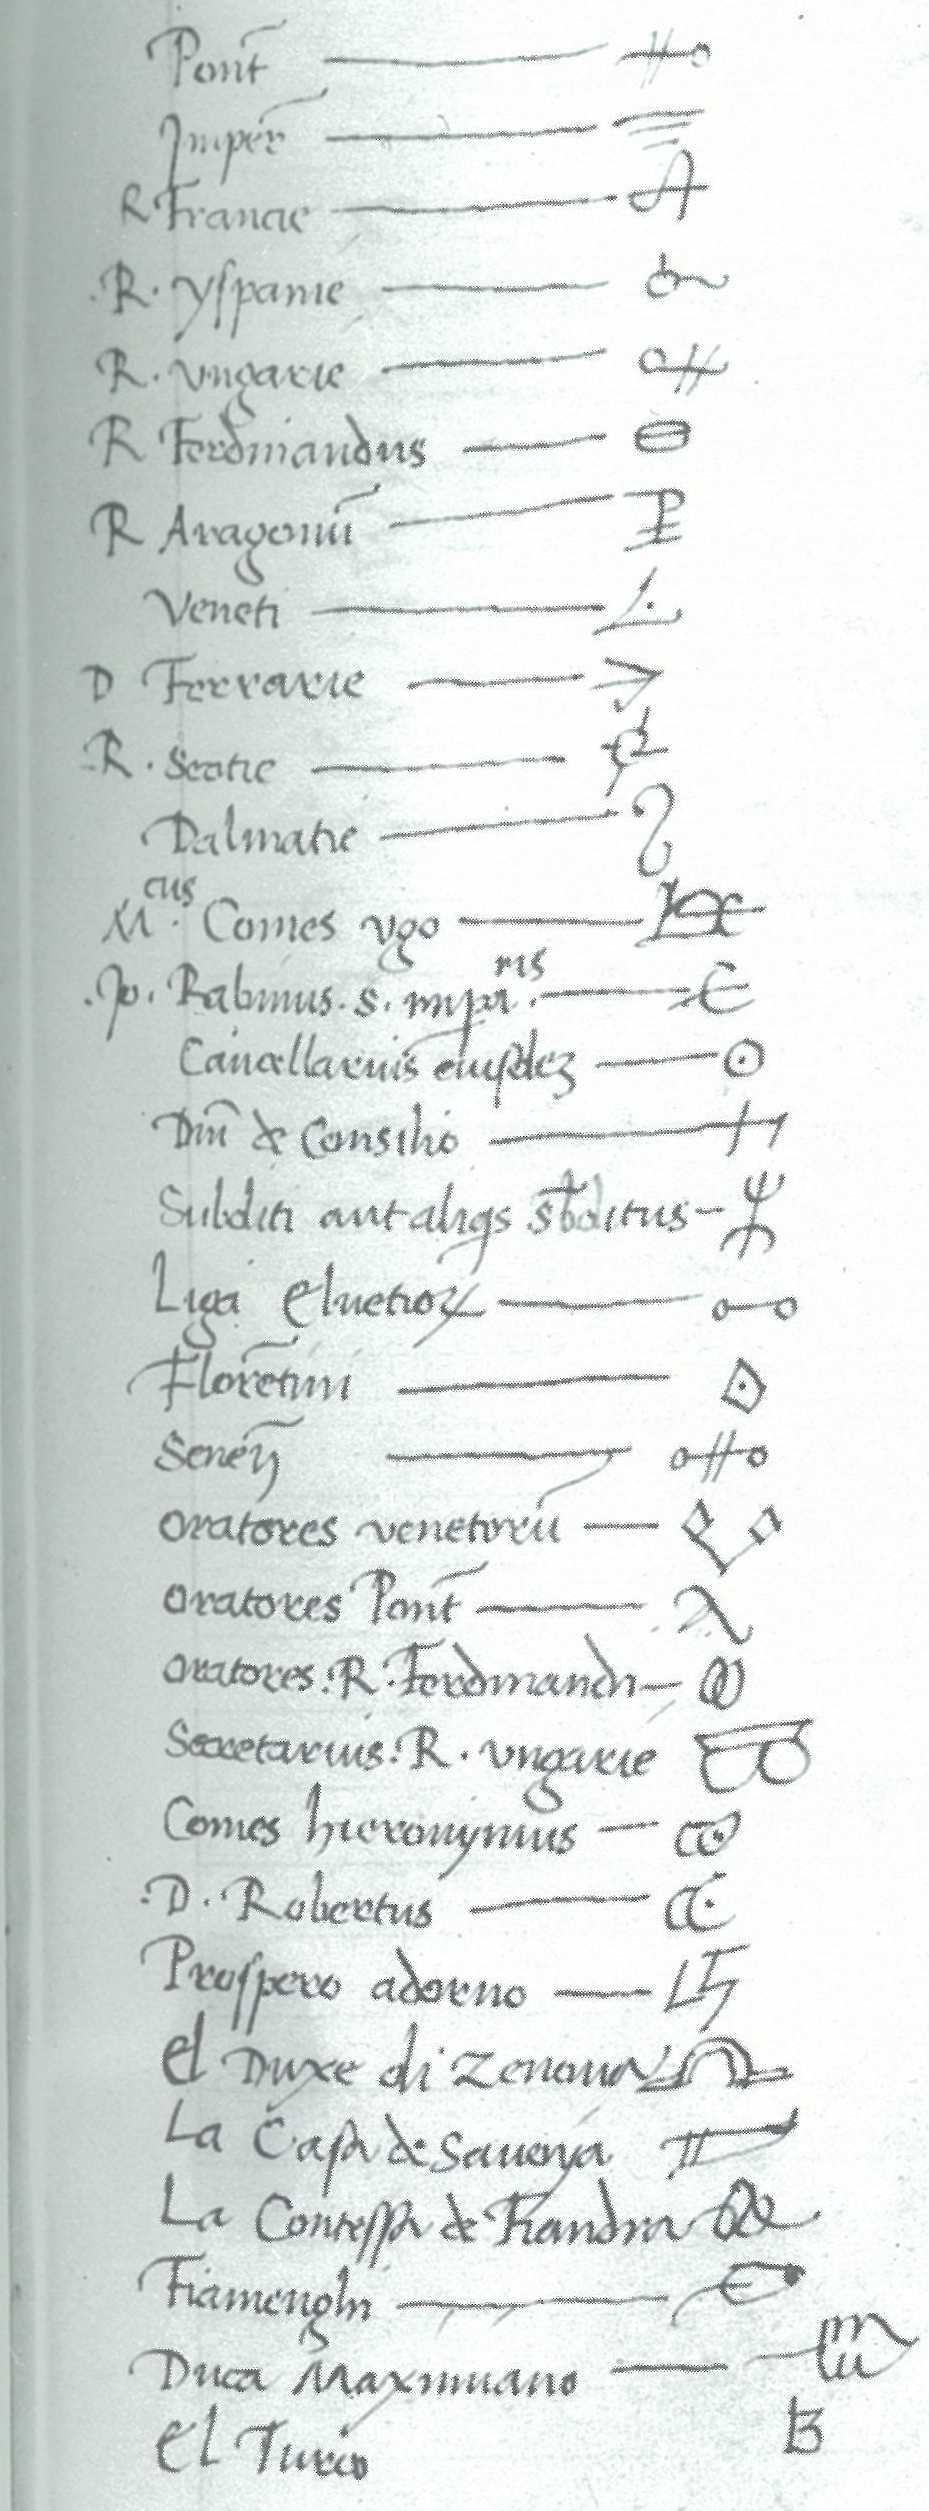 Pont̃
Imper̃
R Francie
.R. yspanie
R. ungarie
R Ferdinandus
R Aragonũ
Veneti
D Ferrarie
.R. Scotie
Dalmatie
M.cus Comes ugo
.Jo. Rabinus. s. impr.ris
Cancellarius eiusdez
Dñi de Consilio
Subditi aut aliqs sbditus
Liga Elvetioꝝ
Florẽtini
Seneñ
Oratores venetorũ
Oratores Pont̃
Oratores .R. Ferdinandi
Secretarius .R. ungarie
Comes hieronymus
.D. Robertus
Prospero adorno
el Duxe di Zenova
La Casa de Savoya
La Contessa de Fiandra
Fiamenghi
Duca Maximiano
el Turco